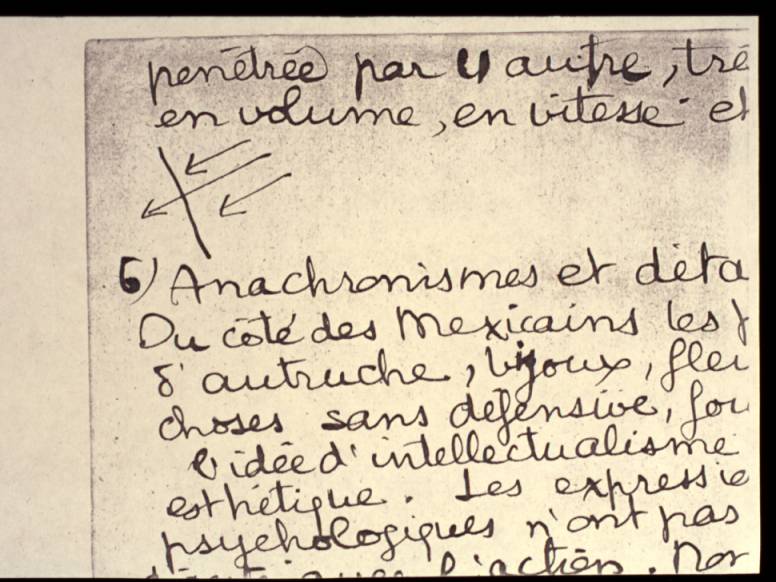 penétrée par 1 autre, tré
en volume, en vitesse et
6) Anachronismes et déta
Du côté des Mexicains les
d'autruche, bijoux, fleu
choses sans défensive, fou
l'idée d'intellectualisme
esthétique. Les expressio
psychologiques n'ont pas
l'action. Nor